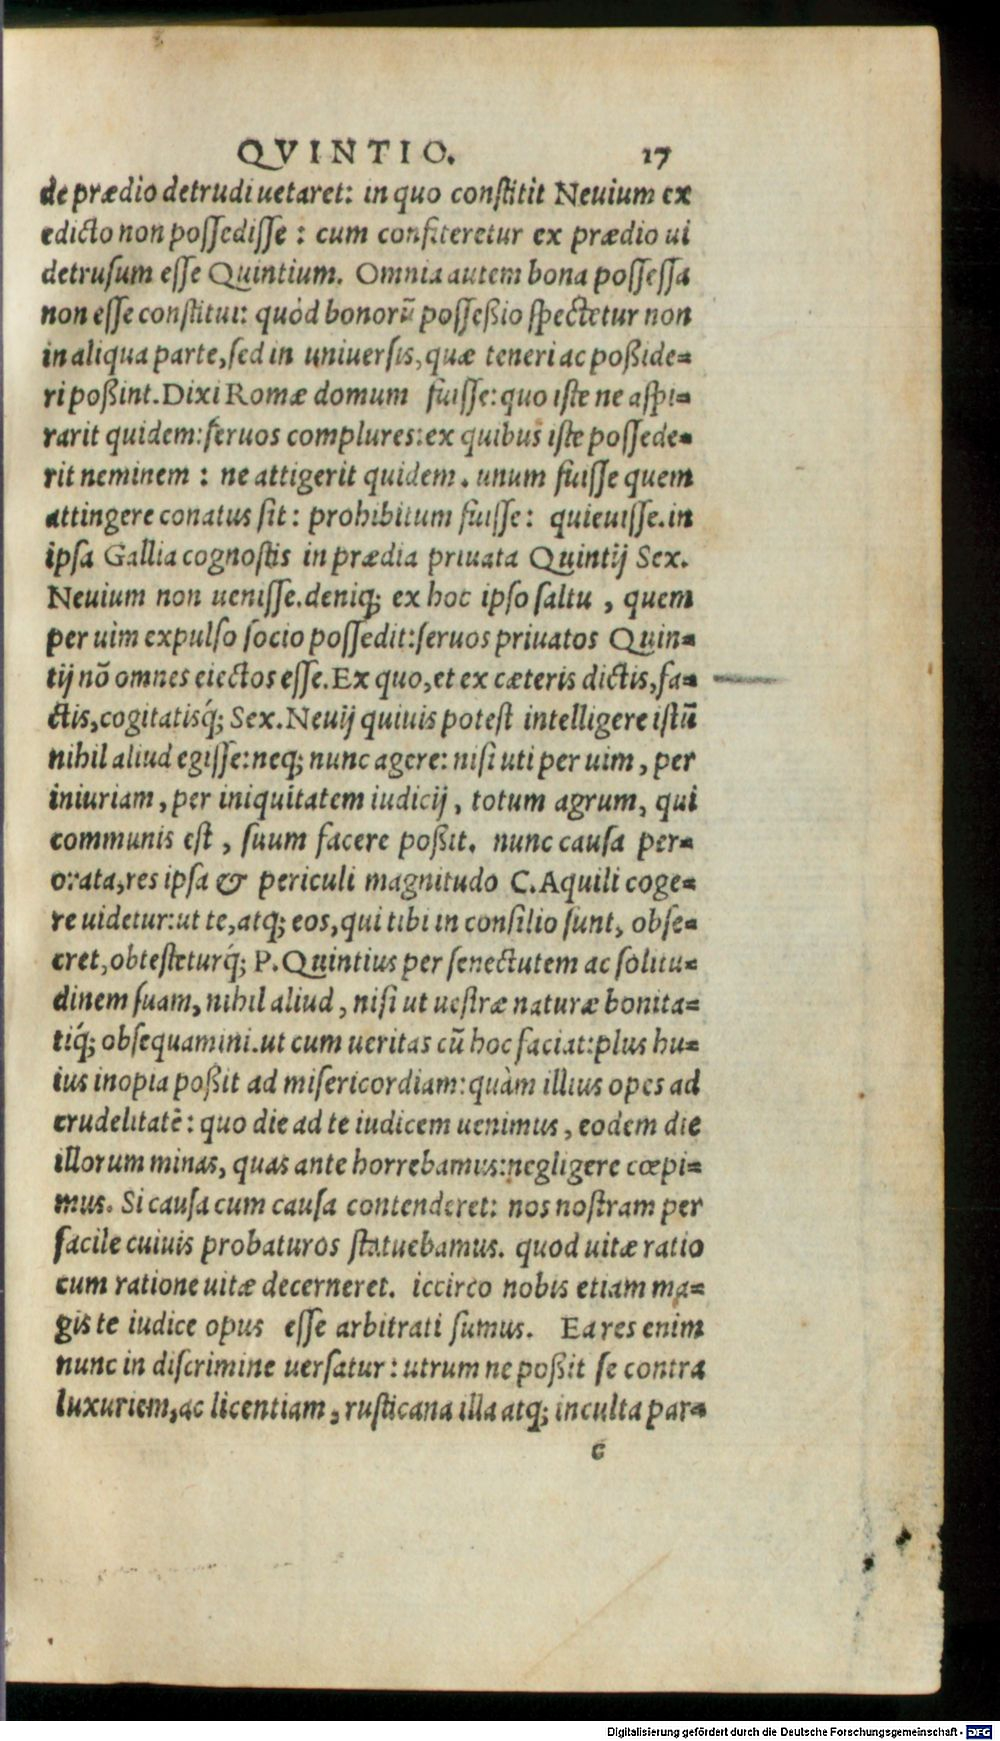 QVINTIO. 17
de prædio detrudi uetaret: in quo constitit Neuium ex
edicto non possedisse : cum confiteretur ex prædio ui
detrusum esse Quintium. Omnia autem bona possessa
non esse constitui: quòd bonorũ possessio spectetur non
in aliqua parte, sed in uniuersis, quæ teneri ac posside=
ri possint. Dixi Romæ domum fuisse: quo iste ne aspi=
rarit quidem: seruos complures: ex quibus iste possede=
rit neminem : ne attigerit quidem. unum fuisse quem
attingere conatus sit : prohibitum fuisse : quieuisse. in
ipsa Gallia cognostis in prædia priuata Quintij Sex.
Neuium non uenisse. deniq; ex hoc ipso saltu , quem
per uim expulso socio possedit: seruos priuatos Quin=
tij nõ omnes eiectos esse. Ex quo, et ex cæteris dictis, fa=
ctis, cogitatisq́; Sex. Neuij quiuis potest intelligere istũ
nihil aliud egisse: neq; nunc agere: nisi uti per uim , per
iniuriam , per iniquitatem iudicij , totum agrum, qui
communis est , suum facere possit. nunc causa per=
orata, res ipsa & periculi magnitudo C. Aquili coge=
re uidetur: ut te, atq; eos, qui tibi in consilio sunt, obse=
cret, obtesteturq́; P. Quintius per senectutem ac solitu=
dinem suam, nihil aliud , nisi ut uestræ naturæ bonita=
tiq́; obsequamini. ut cum ueritas cũ hoc faciat: plus hu=
ius inopia possit ad misericordiam: quàm illius opes ad
crudelitatẽ : quo die ad te iudicem uenimus , eodem die
illorum minas, quas ante horrebamus: negligere cœpi=
mus. Si causa cum causa contenderet: nos nostram per
facile cuiuis probaturos statuebamus. quod uitæ ratio
cum ratione uitæ decerneret. iccirco nobis etiam ma=
gis te iudice opus esse arbitrati sumus. Ea res enim
nunc in discrimine uersatur : utrum ne possit se contra
luxuriem, ac licentiam , rusticana illa atq; inculta par=
c
Digitalisierung gefördert durch die Deutsche Forschungsgemeinschaft - DFG